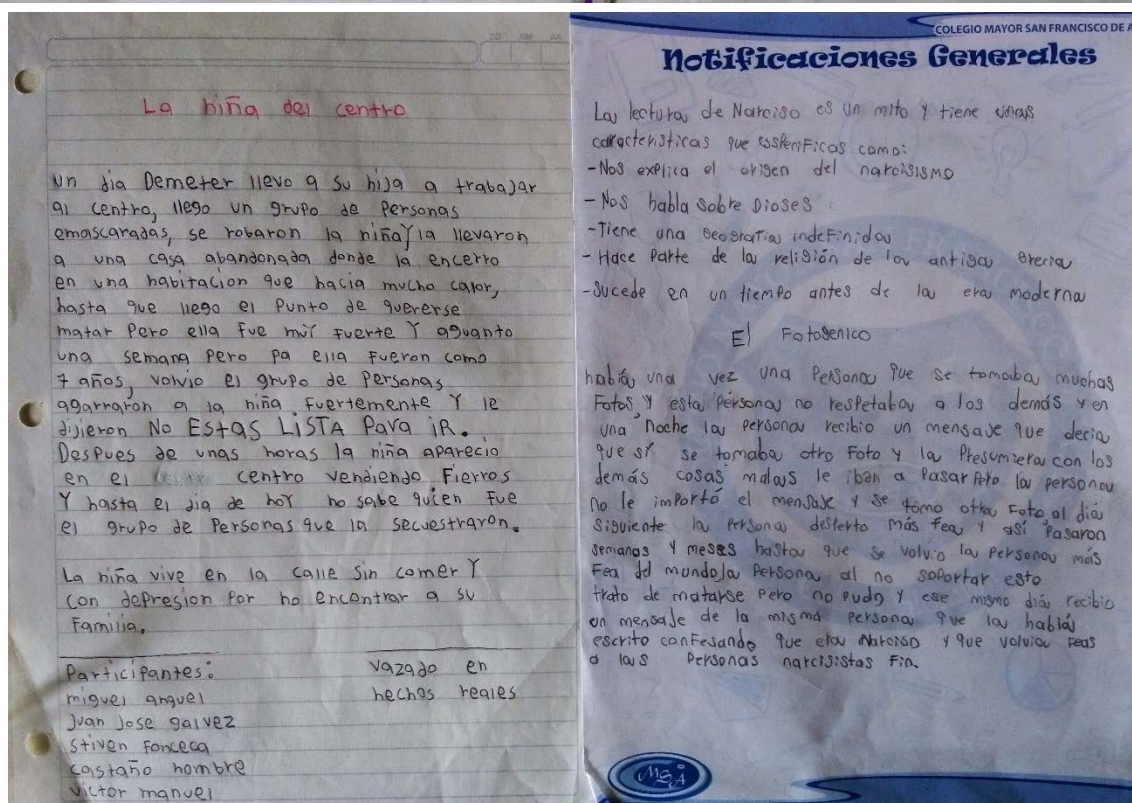 DD MM AA
La niña del centro
un dia Demeter llevo a su hija a trabajar
al centro, llego un grupo de Personas
emascaradas, se robaron la niña y la llevaron
a una casa abandonada donde la encerro
en una habitacion que hacia mucho calor,
hasta que llego el Punto de quererse
matar Pero ella fue muy fuerte Y aguanto
una semana Pero pa ella fueron como
7 años, volvio el grupo de Personas
agarraron a la niña fuertemente Y le
dijieron No EstaS LiSTA Para iR.
Despues de unas horas la niña aparecio
en el centro vendiendo Fierros
Y hasta el dia de hoy no sabe quien fue
el grupo de Personas que la secuestraron.
La niña vive en la calle sin comer Y
con depresion por no encontrar a su
Familia.
Participantes:
miguel anguel
Juan Jose galvez
Stiven fonceca
castaño hombre
victor manuel
vazado en
hechos reales
COLEGIO MAYOR SAN FRANCISCO DE A
Notificaciones Generales
La lectura de Narciso es un mito y tiene unas
caracteristicas que espenificas como:
-Nos explica el origen del narcisismo
-Nos habla sobre Dioses
-Tiene una geografia indefinida
-Hace Parte de la religión de la antigua grecia
-Sucede en un tiempo antes de la era moderna
El Fotogenico
había una vez una Persona que se tomaba muchas
Fotos, y esta persona no respetaba a los demás y en
una noche la persona recibio un mensaje que decia
que si se tomaba otro Foto y la Presumiera con los
demás cosas malas le iban a Pasar Pero la persona
no le importó el mensaje y se tomo otra Foto, al día
siguiente la Persona desperto más fea y así Pasaron
semanas y meses hasta que se volvio la Persona más
Fea del mundo, la Persona al no soportar esto
trato de matarse pero no pudo y ese mismo día recibio
un mensaje de la misma persona que la había
escrito confesando que era Narciso y que volvia feas
a las Personas narcisistas Fin.
MSA